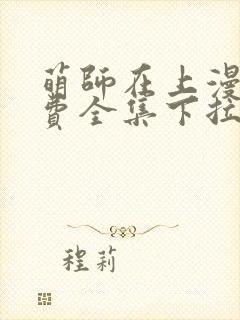 萌师在上漫
费全集下拉
程莉